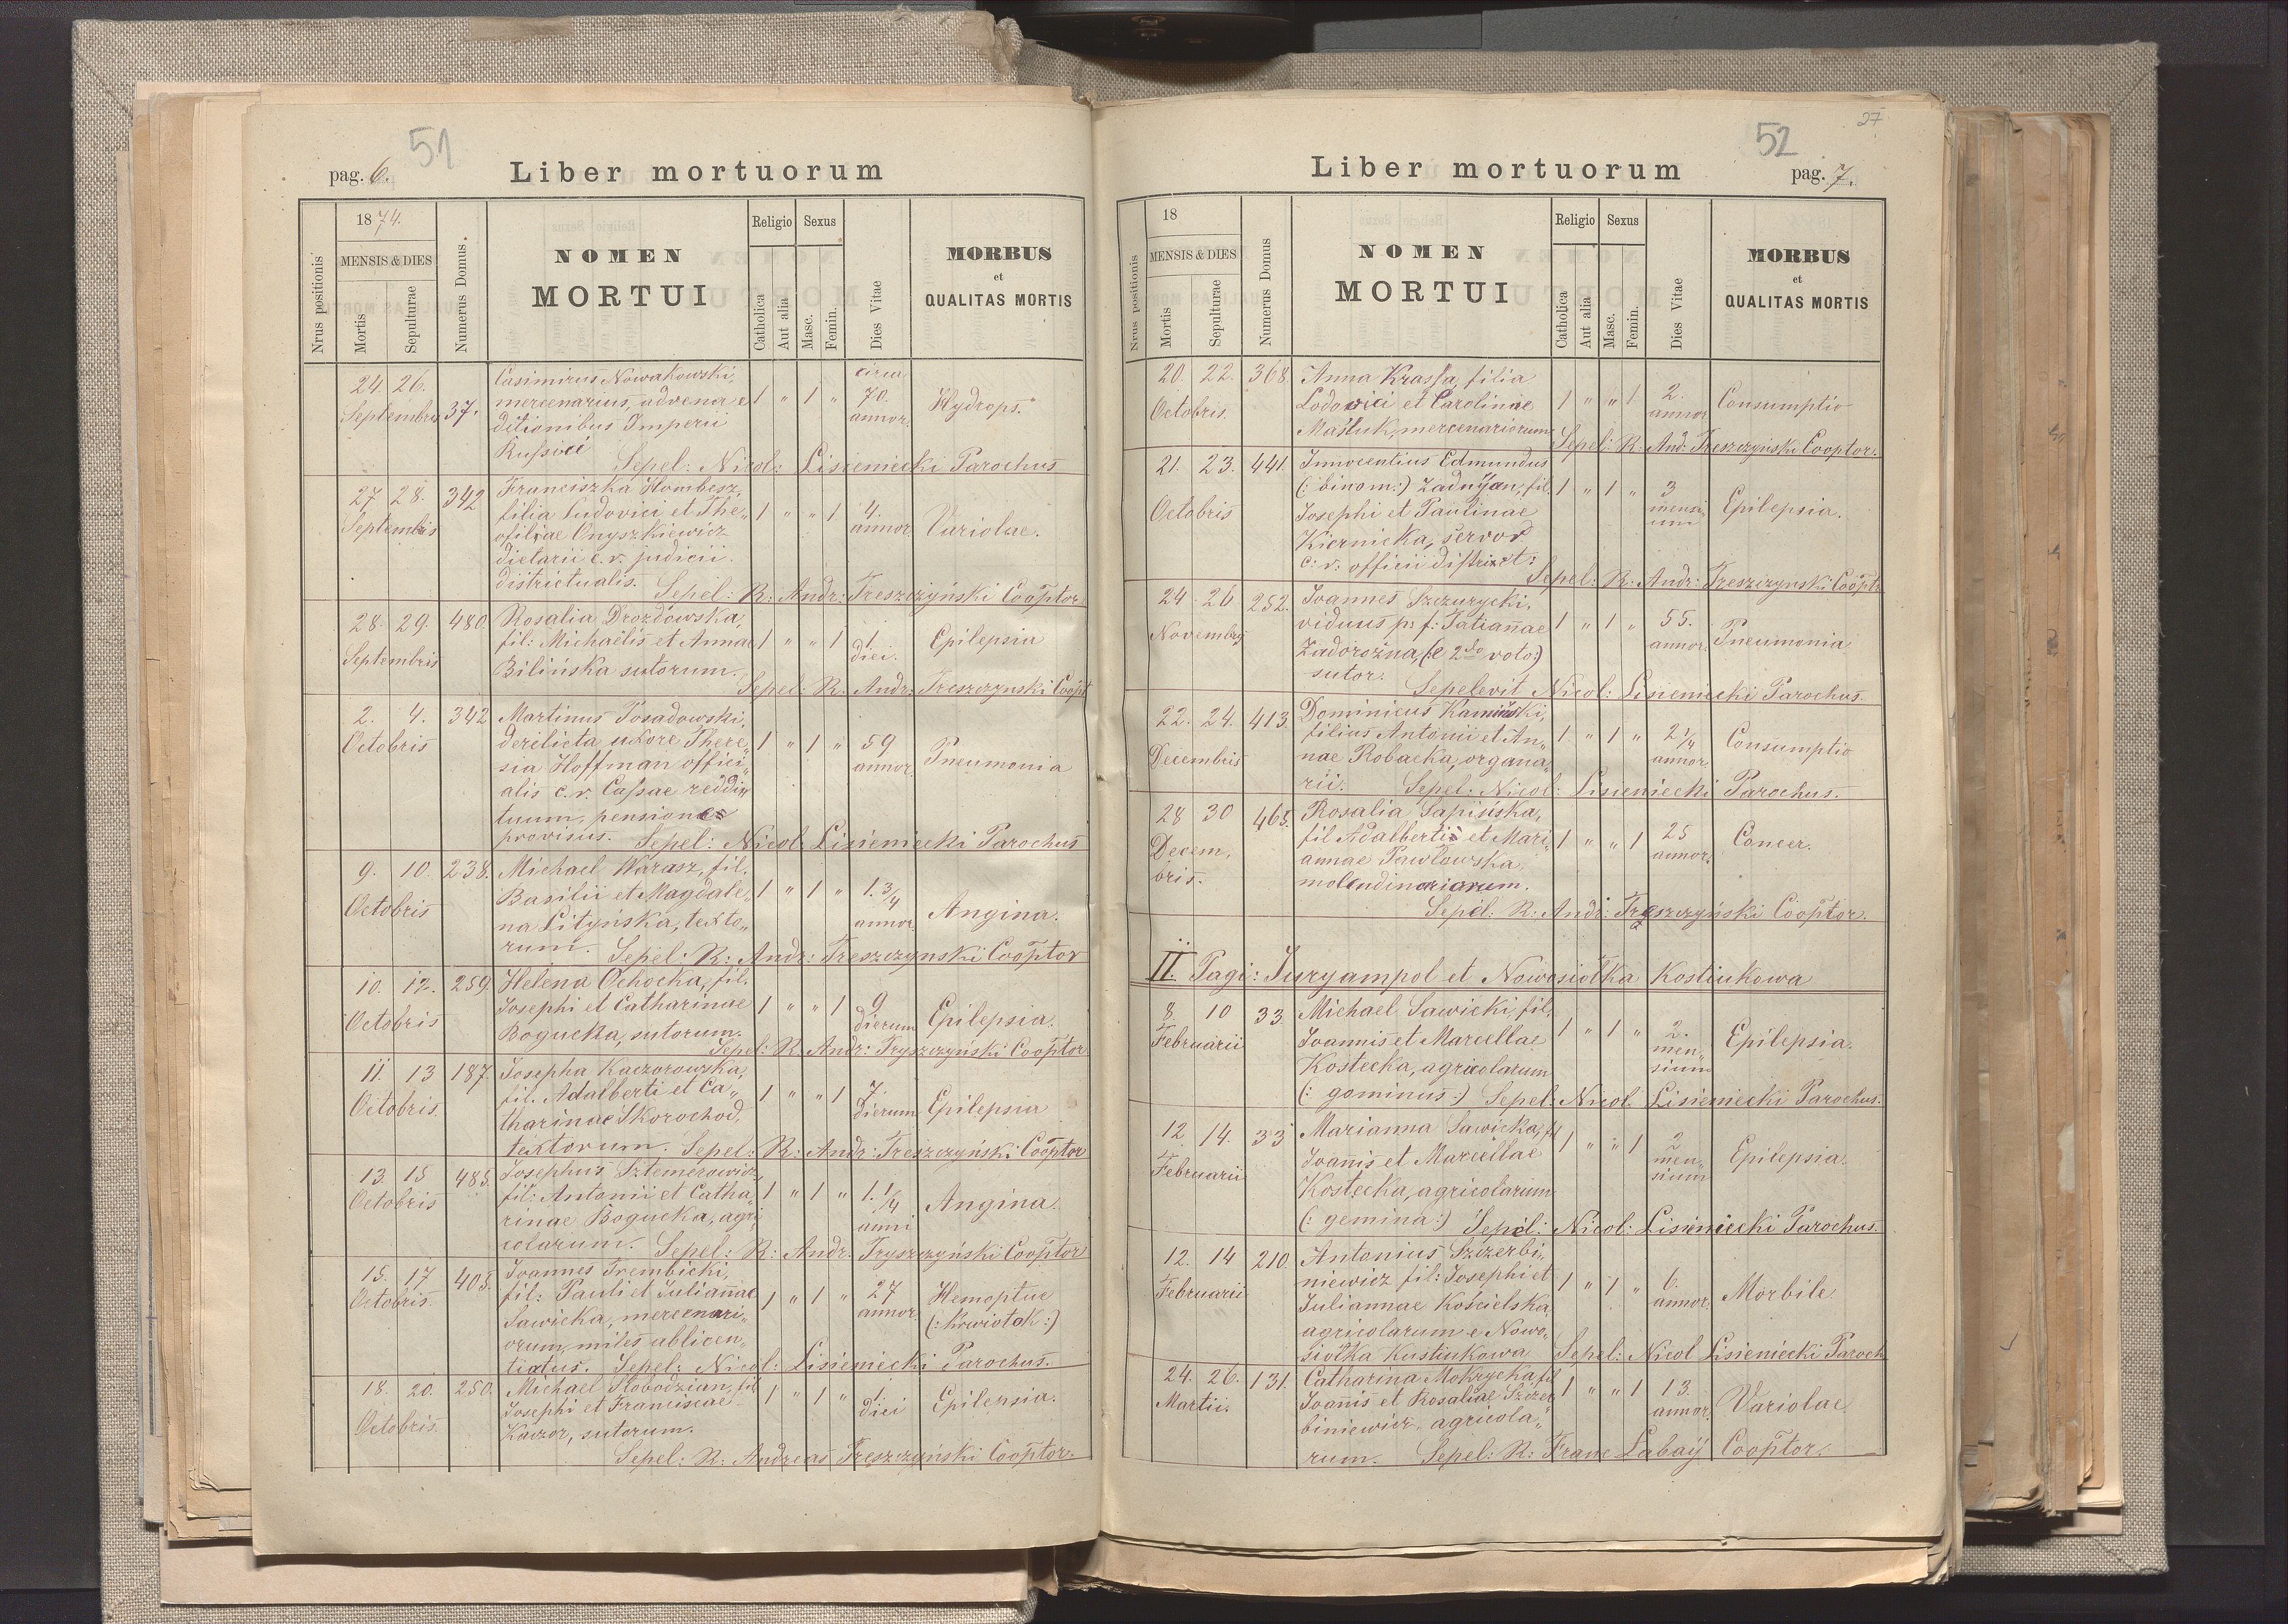 51
pag. 6.
Liber mortuorum
1874.
Nrus positionis
MENSIS & DIES
Mortis
Sepulturae
Numerus Domus.
NOMEN
MORTUI
Religio
Catholica
Aut alia
Sexus
Masc.
Femin.
Dies Vitae
MORBUS
et
QUALITAS MORTIS
24. 26. Septembris 37.
Casimirus Nowakowski,
mercenarius, advena e
ditionibus Imperii
Russici
1 " 1 "
circa
70.
annor.
Hydrops.
Sepel: Nicol: Lisieniecki Parochus
27 28. Septembris 342
Franciszka Hombesz,
filia Ludovici et The„
ofiliae Onyszkiewicz
dietarii c. r. judicii
districtualis.
1 " " 1
4.
annor
Variolae.
Sepel: R: Andr: Treszczyński Cooptor.
28. 29. Septembris 480.
Rosalia Drozdowska,
fil: Michaëlis et Annae
Bilińska sutorum.
1 " " 1
1.
diei.
Epilepsia
Sepel: R: Andr: Treszczynski Coopt
2. 4. Octobris 342
Martinus Posadowski,
derelicta uxore There„
sia Hoffman offici„
alis c. r. Cassae reddi„
tuum, pensiones
provisus.
1 " 1 "
59
annor.
Pneumonia
Sepel: Nicol: Lisieniecki Parochus
9. 10. Octobris 238.
Michael Warasz, fil.
Basilii et Magdale„
na Lityńska, texto„
rum.
1 " 1 "
1. 3/4
annor
Angina.
Sepel: R: Andr: Treszczynski Cooptor
10. 12. Octobris 259.
Helena Ochocka, fil.
Josephi et Catharinae
Bogucka, sutorum.
1 " " 1
9
dierum
Epilepsia.
Sepel: R: Andr: Tryszczyński Cooptor
11. 13 Octobris. 187.
Josepha Kaczorowska,
fil. Adalberti et Ca„
tharinae Skorochod,
textorum.
1 " " 1
7.
dierum
Epilepsia
Sepel: R: Andr: Treszczyński Cooptor
13. 15 Octobris 485.
Josephus Sztemerowicz,
fil: Antonii et Catha„
rinae Bogucka, agri„
colarum.
1 " 1 "
1. 1/4
anni
Angina.
Sepel: R: Andr: Tryszczyński Cooptor
15. 17 Octobris. 405.
Joannes Trembicki,
fil: Pauli et Juliannae
Sawicka, mercenari„
orum, miles ablicen„
tiatus.
1 " 1 "
27
annor.
Hemoptue
(: krwiotok :)
Sepel: Nicol: Lisieniecki Parochus.
18. 20. Octobris. 250.
Michael Slobodzian, fil
Josephi et Franciscae
Kaczor, sutorum.
1 " 1 "
1.
diei
Epilepsia.
Sepel: R: Andreas Treszczyński Cooptor.
52
27
Liber mortuorum
pag. 7.
18
Nrus positionis
MENSIS & DIES
Mortis
Sepulturae
Numerus Domus
NOMEN
MORTUI
Religio
Catholica
Aut alia
Sexus
Masc.
Femin.
Dies Vitae
MORBUS
et
QUALITAS MORTIS
20. 22. Octobris. 368.
Anna Krassa, filia
Lodovici et Carolinae
Maśluk, mercenariorum
1 " " 1
2.
annor
Consumptio
Sepel: R: And: Treszczyński Cooptor.
21. 23. Octobris 441.
Innocentius Edmundus
(: binom:) Zadujan, fil.
Josephi et Paulinae
Kiernicka, servor
c: r: officii district:
1 " 1 "
3
mensi„
um
Epilepsia.
Sepel: R: Andr: Treszczynski Coopt:
24. 26 Novembris 252.
Joannes Szczurycki,
viduus p: f: Tatiannae
Zadorożna, (: e 2do voto:)
sutor.
1 " 1 "
55.
annor.
Pneumonia
Sepelevit Nicol: Lisieniecki Parochus.
22. 24. Decembris 413.
Dominicus Kamiński,
filius Antonii et An„
nae Robacka, organa„
rii.
1 " 1 "
2 1/4
annor
Consumptio
Sepel: Nicol: Lisieniecki Parochus.
28 30 Decem„
bris. 465.
Rosalia Sapińska,
fil Adalberti et Mari„
annae Pawłowska,
molendinariorum.
1 " " 1
25
annor.
Concer.
Sepel: R: Andr: Treszczyński Cooptor.
II. Pagi: Juryampol et Nowosiołka Kostiukowa
8. 10 Februarii 33.
Michael Sawicki, fil.
Joannis et Marcellae
Kostecka, agricolarum
(: gominus:)
1 " 1 "
2.
men„
sium
Epilepsia.
Sepel: Nicol. Lisieniecki Parochus.
12 14. Februarii 33
Marianna Sawicka, fil
Joannis et Marcellae
Kostecka, agricolarum
(: gemina:)
1 " " 1
2
men„
sium
Epilepsia.
Sepel: Nicol: Lisieniecki Parochus.
12. 14 Februarii 210.
Antonius Szczerbi„
niewicz fil: Josephi et
Juliannae Kościelska,
agricolarum e Nowo„
siołka Kustiukowa
1 " 1 "
6.
annor.
Morbile
Sepel: Nicol Lisieniecki Paroch
24. 26. Martii. 131.
Catharina Mokrycka, fil
Joannis et Rosaliae Szczer„
biniewicz, agricola„
rum.
1 " " 1
13.
annor.
Variolae
Sepel: R: Franc Labaij Cooptor.